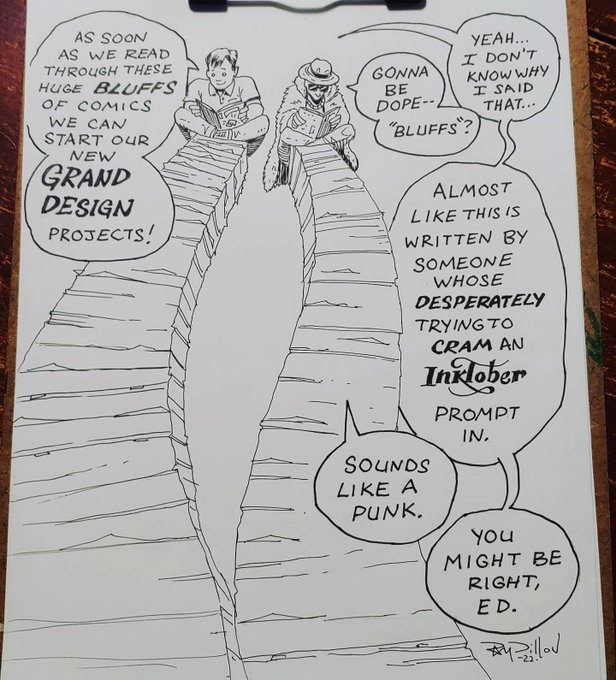 AS SOON
AS WE READ
THROUGH THESE
HUGE BLUFFS
OF COMICS
WE CAN
START OUR
NEW
GRAND
DESIGN
PROJECTS!
GONNA
BE
DOPE--
"BLUFFS"?
YEAH...
I DON'T
KNOW WHY
I SAID
THAT...
ALMOST
LIKE THIS IS
WRITTEN BY
SOMEONE
WHOSE
DESPERATELY
TRYING TO
CRAM AN
Inktober
PROMPT
IN.
SOUNDS
LIKE A
PUNK.
YOU
MIGHT BE
RIGHT,
ED.
Dillon
-22-